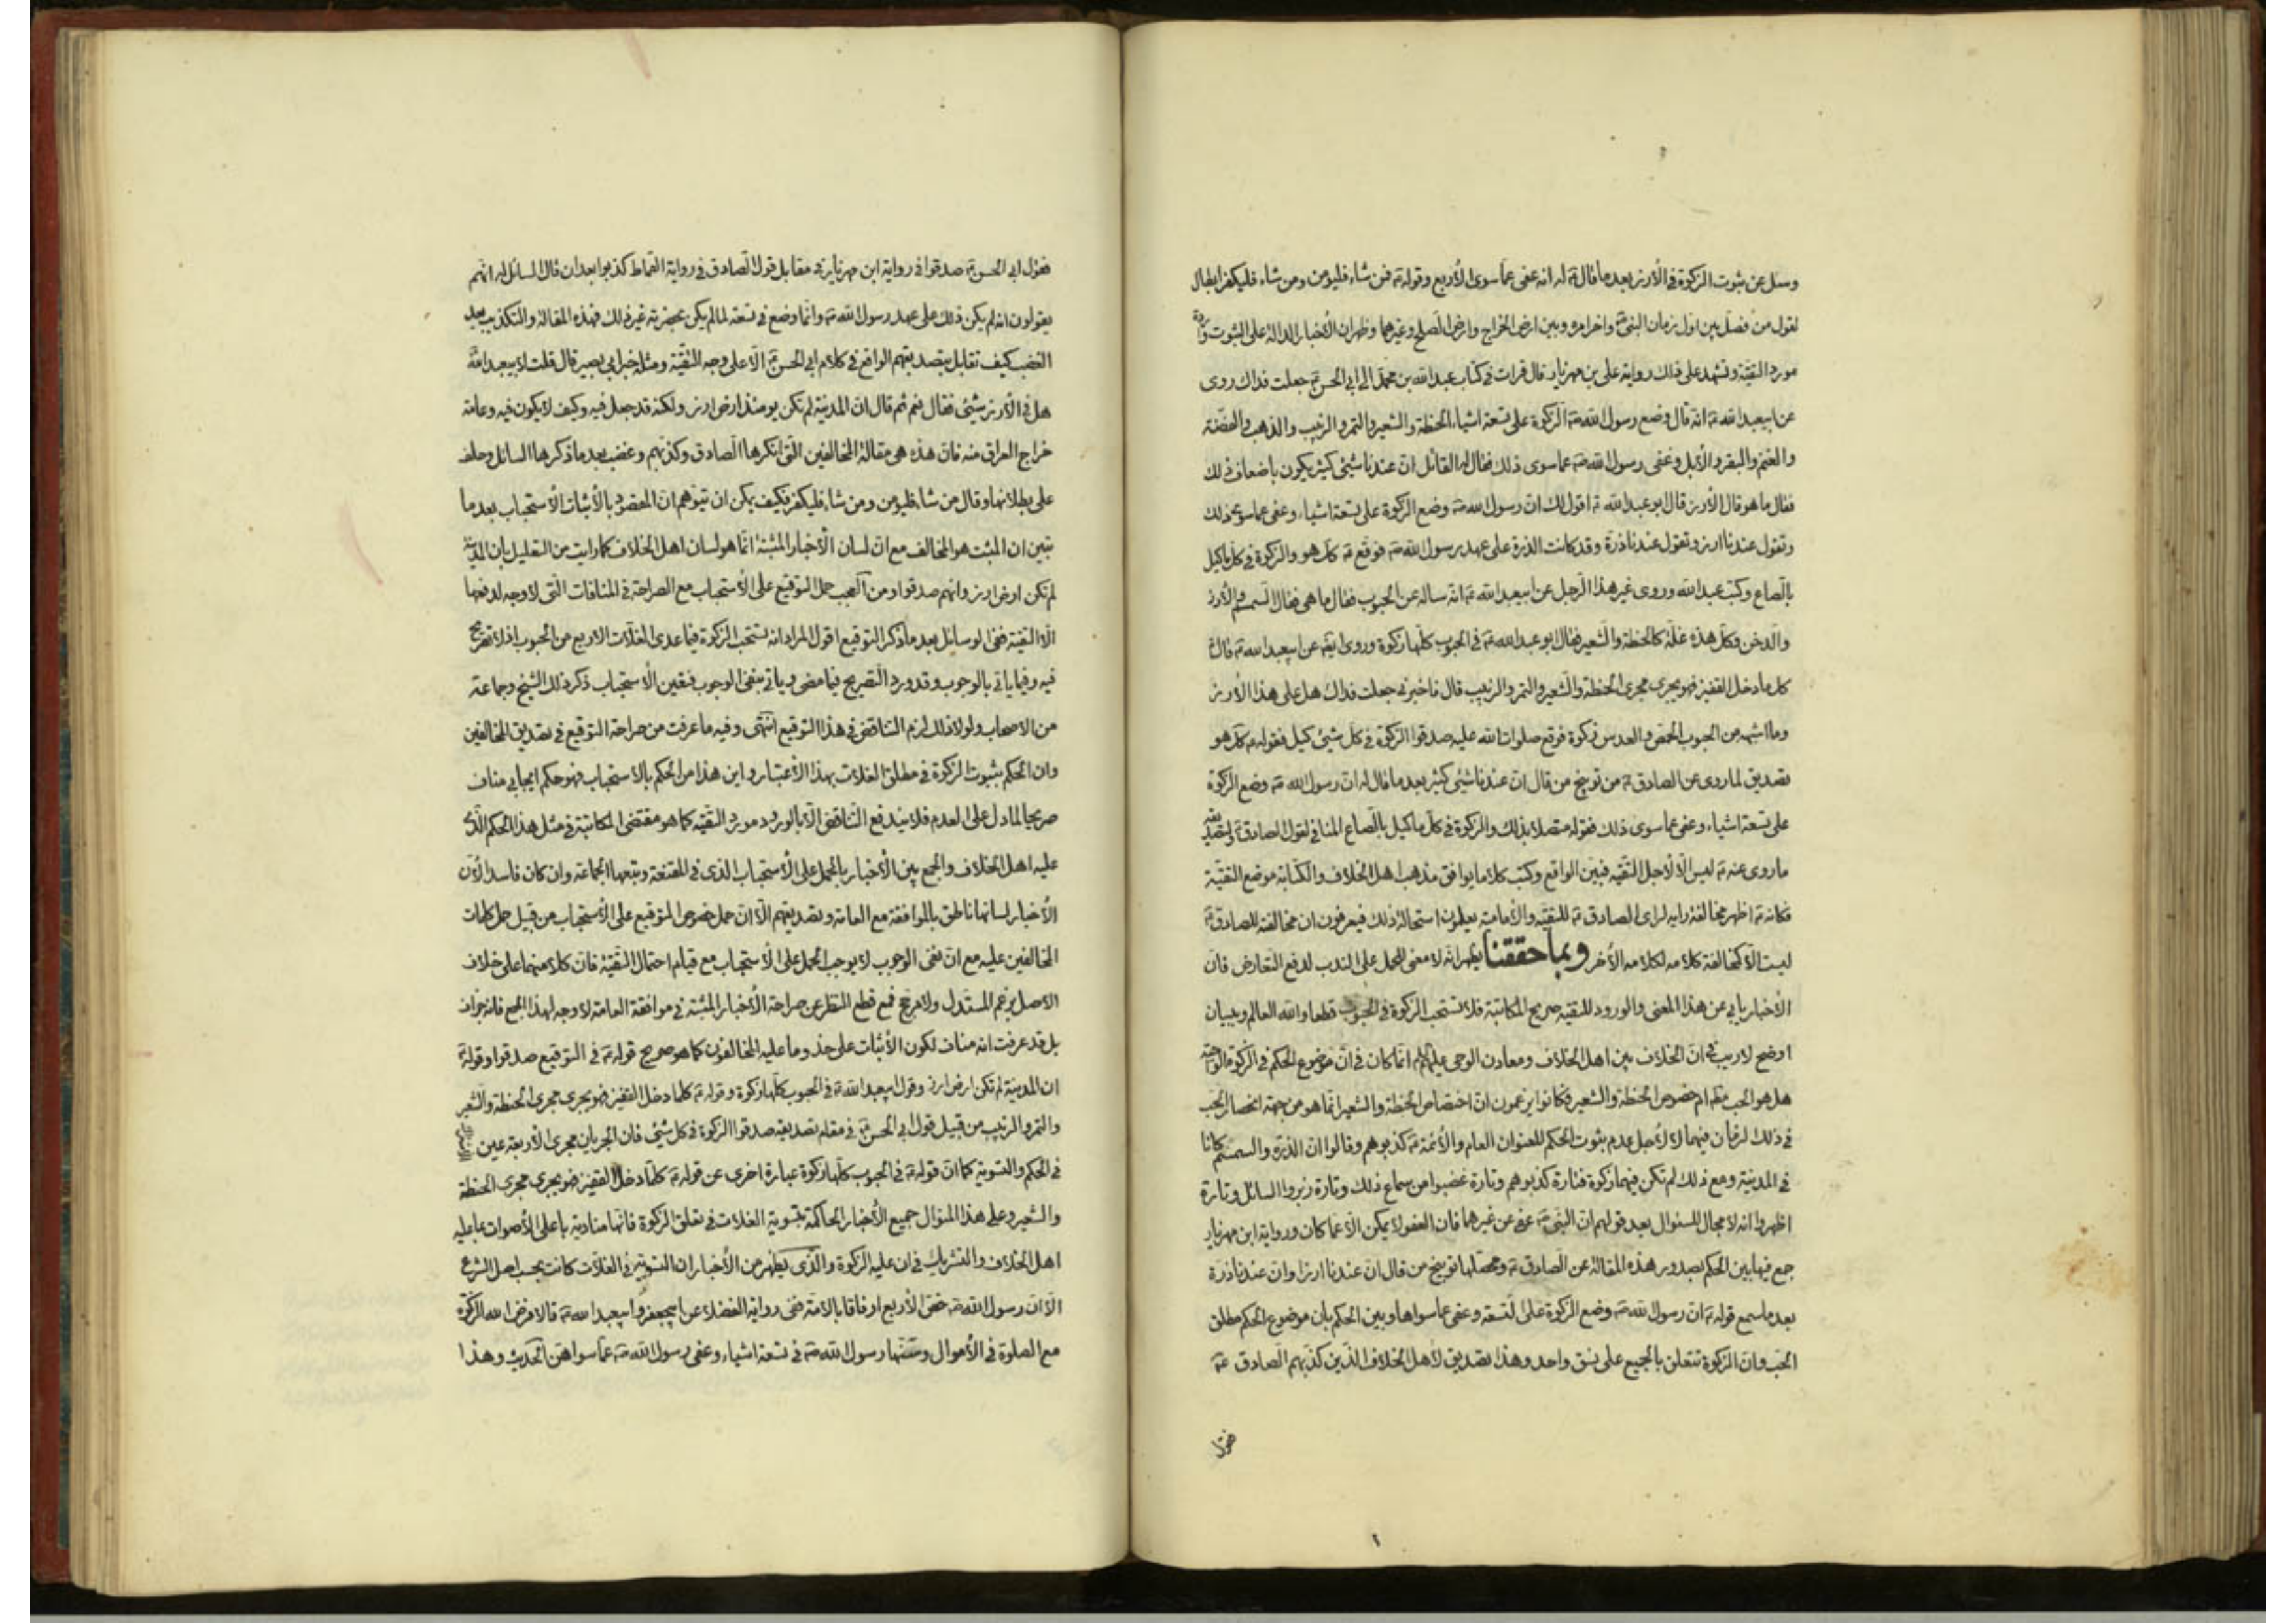 وسئل عن ثبوت الزكوة في الأرز بعد ما قال ع له انه عفى عما سوى الأربع وقوله ع فمن شاء فليؤمن ومن شاء فليكفر ابطال
لقول من فصل بين اول زمان النبي ص واخرامره وبين ارض الخراج وارض الصلح وغيرهما وظهر ان الأخبار الدالة على الثبوت واردة
مورد التقية وتشهد على ذلك رواية علي بن مهزيار قال قرات في كتاب عبد الله بن محمد الى ابي الحسن ع جعلت فداك روى
عن ابيعبد الله ع انه قال وضع رسول الله ص الزكوة على تسعة اشياء الحنطة والشعير والتمر والزبيب والذهب والفضة
والغنم والبقر والأبل وعفى رسول الله ص عما سوى ذلك فقال له القائل ان عندنا شيئ كثير يكون باضعاف ذلك
فقال ما هو قال الأرز قال ابو عبد الله ع اقول لك ان رسول الله ص وضع الزكوة على تسعة اشياء وعفى عما سوى ذلك
وتقول عندنا ارز وتقول عندنا ذرة وقد كانت الذرة على عهد رسول الله ص فوقع ع كك هو والزكوة في كل ما كيل
بالصاع وكتب عبد الله وروى غير هذا الرجل عن ابيعبد الله ع انه ساله عن الحبوب فقال ما هي فقال السمسم والأرز
والدخن وكل هذه غلة كالحنطة والشعير فقال ابو عبد الله ع في الحبوب كلها زكوة وروى ايض عن ابيعبد الله ع قال
كل ما دخل القفيز فهو يجرى مجرى الحنطة والشعير والتمر والزبيب قال فاخبرني جعلت فداك هل على هذا الأرز
وما اشبهه من الحبوب الحمص والعدس زكوة فوقع صلوات الله عليه صدقوا الزكوة في كل شيئ كيل فقوله ع كك هو
تصديق لما روى عن الصادق ع من توبيخ من قال ان عندنا شيئ كثير بعد ما قال له ان رسول الله ص وضع الزكوة
على تسعة اشياء وعفى عما سوى ذلك فقوله متصلا بذلك والزكوة في كل ما كيل بالصاع المنافي لقول الصادق ع ولتصديقه
ما روى عنه ع ليس الا لأجل التقيه فبين الواقع وكتب كلاما يوافق مذهب اهل الخلاف والكتابة موضع التقية
فكانه ع اظهر مخالفة رايه لراى الصادق ع للتقيه والأمامية يعلمون استحالة ذلك فيعرفون ان مخالفته للصادق ع
ليست الا كمخالفة كلامه لكلامه الأخر وبما حققنا يظهر انه لا معنى للحمل على الندب لدفع التعارض فان
الأخبار يابي عن هذا المعنى والورود للتقيه صريح المكاتبة فلا تستحب الزكوة في الحبوب قطعا والله العالم وببيان
اوضح لا ريب في ان الخلاف بين اهل الخلاف ومعادن الوحى عليهم انما كان في ان موضوع الحكم في الزكوة الواجبة
هل هو الحب مط ام خصوص الحنطة والشعير فكانوا يزعمون ان اختصاص الحنطة والشعير انما هو من جهة انحصار الحب
في ذلك الزمان فيهما لا لأجل عدم ثبوت الحكم للعنوان العام والأئمة ع كذبوهم وقالوا ان الذرة والسمسم كانا
في المدينة ومع ذلك لم تكن فيهما زكوة فتارة كذبوهم وتارة غضبوا من سماع ذلك وتارة زبروا السائل وتارة
اظهروا انه لا مجال للسئوال بعد قولهم ان النبي ص عفى عن غيرها فان العفو لا يمكن الا عما كان ورواية ابن مهزيار
جمع فيها بين الحكم بصدور هذه المقالة عن الصادق ع ومحصلها توبيخ من قال ان عندنا ارزا وان عندنا ذرة
بعد ما سمع قوله ع ان رسول الله ص وضع الزكوة على التسعة وعفى عما سواها وبين الحكم بان موضوع الحكم مطلق
الحب وان الزكوة تتعلق بالجميع على نسق واحد وهذا تصديق لأهل الخلاف الذين كذبهم الصادق ع
فقول
فقول ابي الحسن ع صدقوا في رواية ابن مهزيار في مقابل قول الصادق في رواية القماط كذبوا بعد ان قال السائل له انهم
يقولون انه لم يكن ذلك على عهد رسول الله ص وانما وضع في تسعة لما لم يكن بحضرته غير ذلك فهذه المقالة والتكذيب بعد
الغضب كيف تقابل بتصديقهم الواقع في كلام ابي الحسن ع الا على وجه التقية ومثله خبر ابي بصير قال قلت لأبيعبد الله
هل في الأرز شيئ فقال نعم ثم قال ان المدينة لم تكن يومئذ ارض ارز ولكنه قد جعل فيه وكيف لا يكون فيه وعامة
خراج العراق منه فان هذه هي مقالة المخالفين التي انكرها الصادق وكذبهم وغضب بعد ما ذكرها السائل وحلف
على بطلانها وقال من شاء فليؤمن ومن شاء فليكفر فكيف يمكن ان يتوهم ان المقصود بالأثبات الأستحباب بعد ما
تبين ان المثبت هو المخالف مع ان لسان الأخبار المثبتة انما هو لسان اهل الخلاف كما رايت من التعليل بان المدينة
لم تكن ارض ارز وانهم صدقوا ومن العجب حمل التوقيع على الأستحباب مع الصراحة في المنافات التي لا وجه لدفعها
الا التقية ففى الوسائل بعد ما ذكر التوقيع اقول المراد انه تستحب الزكوة فيما عدى الغلات الاربع من الحبوب اذ لا تصريح
فيه وفيما ياتي بالوجوب وقد ورد التصريح فيما مضى وياتي بنفى الوجوب فتعين الأستحباب ذكر ذلك الشيخ وجماعة
من الاصحاب ولولا ذلك لزم التناقض في هذا التوقيع انتهى وفيه ما عرفت من صراحة التوقيع في تصديق المخالفين
وان الحكم بثبوت الزكوة في مطلق الغلات بهذا الأعتبار واين هذا من الحكم بالاستحباب فهو حكم ايجابي مناف
صريحا لما دل على العدم فلا يندفع التناقض الا بالورود مورد التقيه كما هو مقتضى المكاتبة في مثل هذا الحكم الذى
عليه اهل الخلاف والجمع بين الأخبار بالحمل على الأستحباب الذى في المقنعة وتبعها الجماعة وان كان فاسدا لأن
الأخبار لسانها ناطق بالموافقة مع العامة وتصديقهم الا ان حمل خصوص التوقيع على الأستحباب من قبيل حمل كلمات
المخالفين عليه مع ان نفى الوجوب لا يوجب الحمل على الأستحباب مع قيام احتمال التقية فان كلا منهما على خلاف
الاصل بزعم المستدل ولا مرجح فمع قطع النظر عن صراحة الأخبار المثبتة في موافقة العامة لا وجه لهذا الجمع فانه جزاف
بل قد عرفت انه مناف لكون الأثبات على حذو ما عليه المخالفون كما هو صريح قوله ع في التوقيع صدقوا وقوله ع
ان المدينة لم تكن ارض ارز وقول ابيعبد الله ع في الحبوب كلها زكوة وقوله ع كلما دخل القفيز فهو يجرى مجرى الحنطة والشعير
والتمر والزبيب من قبيل قول ابي الحسن ع في مقام تصديقه صدقوا الزكوة في كل شيئ فان الجريان مجرى الأربعة عين
في الحكم والتسوية كما ان قوله ع في الحبوب كلها زكوة عبارة اخرى عن قوله ع كلما دخل القفيز فهو يجرى مجرى الحنطة
والشعير وعلى هذا المنوال جميع الأخبار الحاكمة بتسوية الغلات في تعلق الزكوة فانها منادية باعلى الأصوات بما عليه
اهل الخلاف والتشريك في ان عليه الزكوة والذى يظهر من الأخبار ان التسوية في الغلات كانت بحسب اصل الشرع
الا ان رسول الله ص خص الأربع ارفاقا بالامة ففى رواية الفضلاء عن ابيجعفر وابيعبد الله ع قالا فرض الله الزكوة
مع الصلوة في الأموال وسنها رسول الله ص في تسعة اشياء وعفى رسول الله ص عما سواهن الحديث وهذا